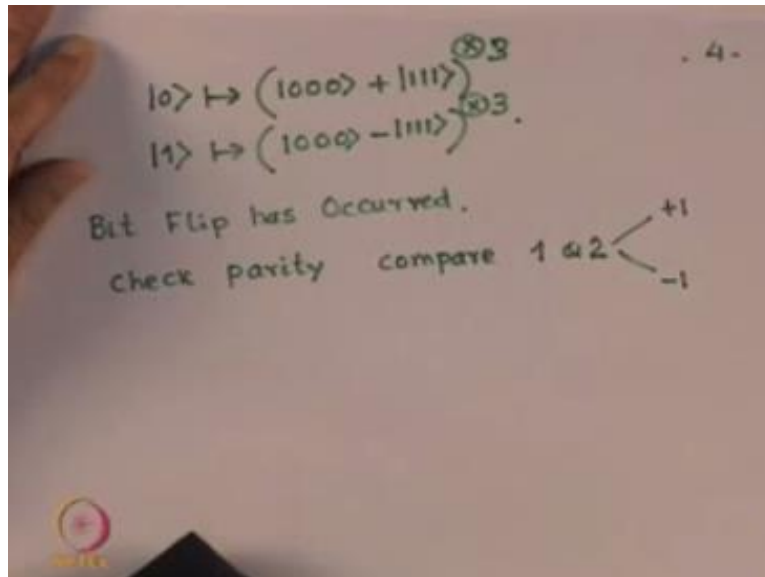 . 4 .
|0> ↦ (|000> + |111>)⊗3
|1> ↦ (|000> - |111>)⊗3.
Bit Flip has Occurred.
check parity compare 1 & 2 < +1
-1